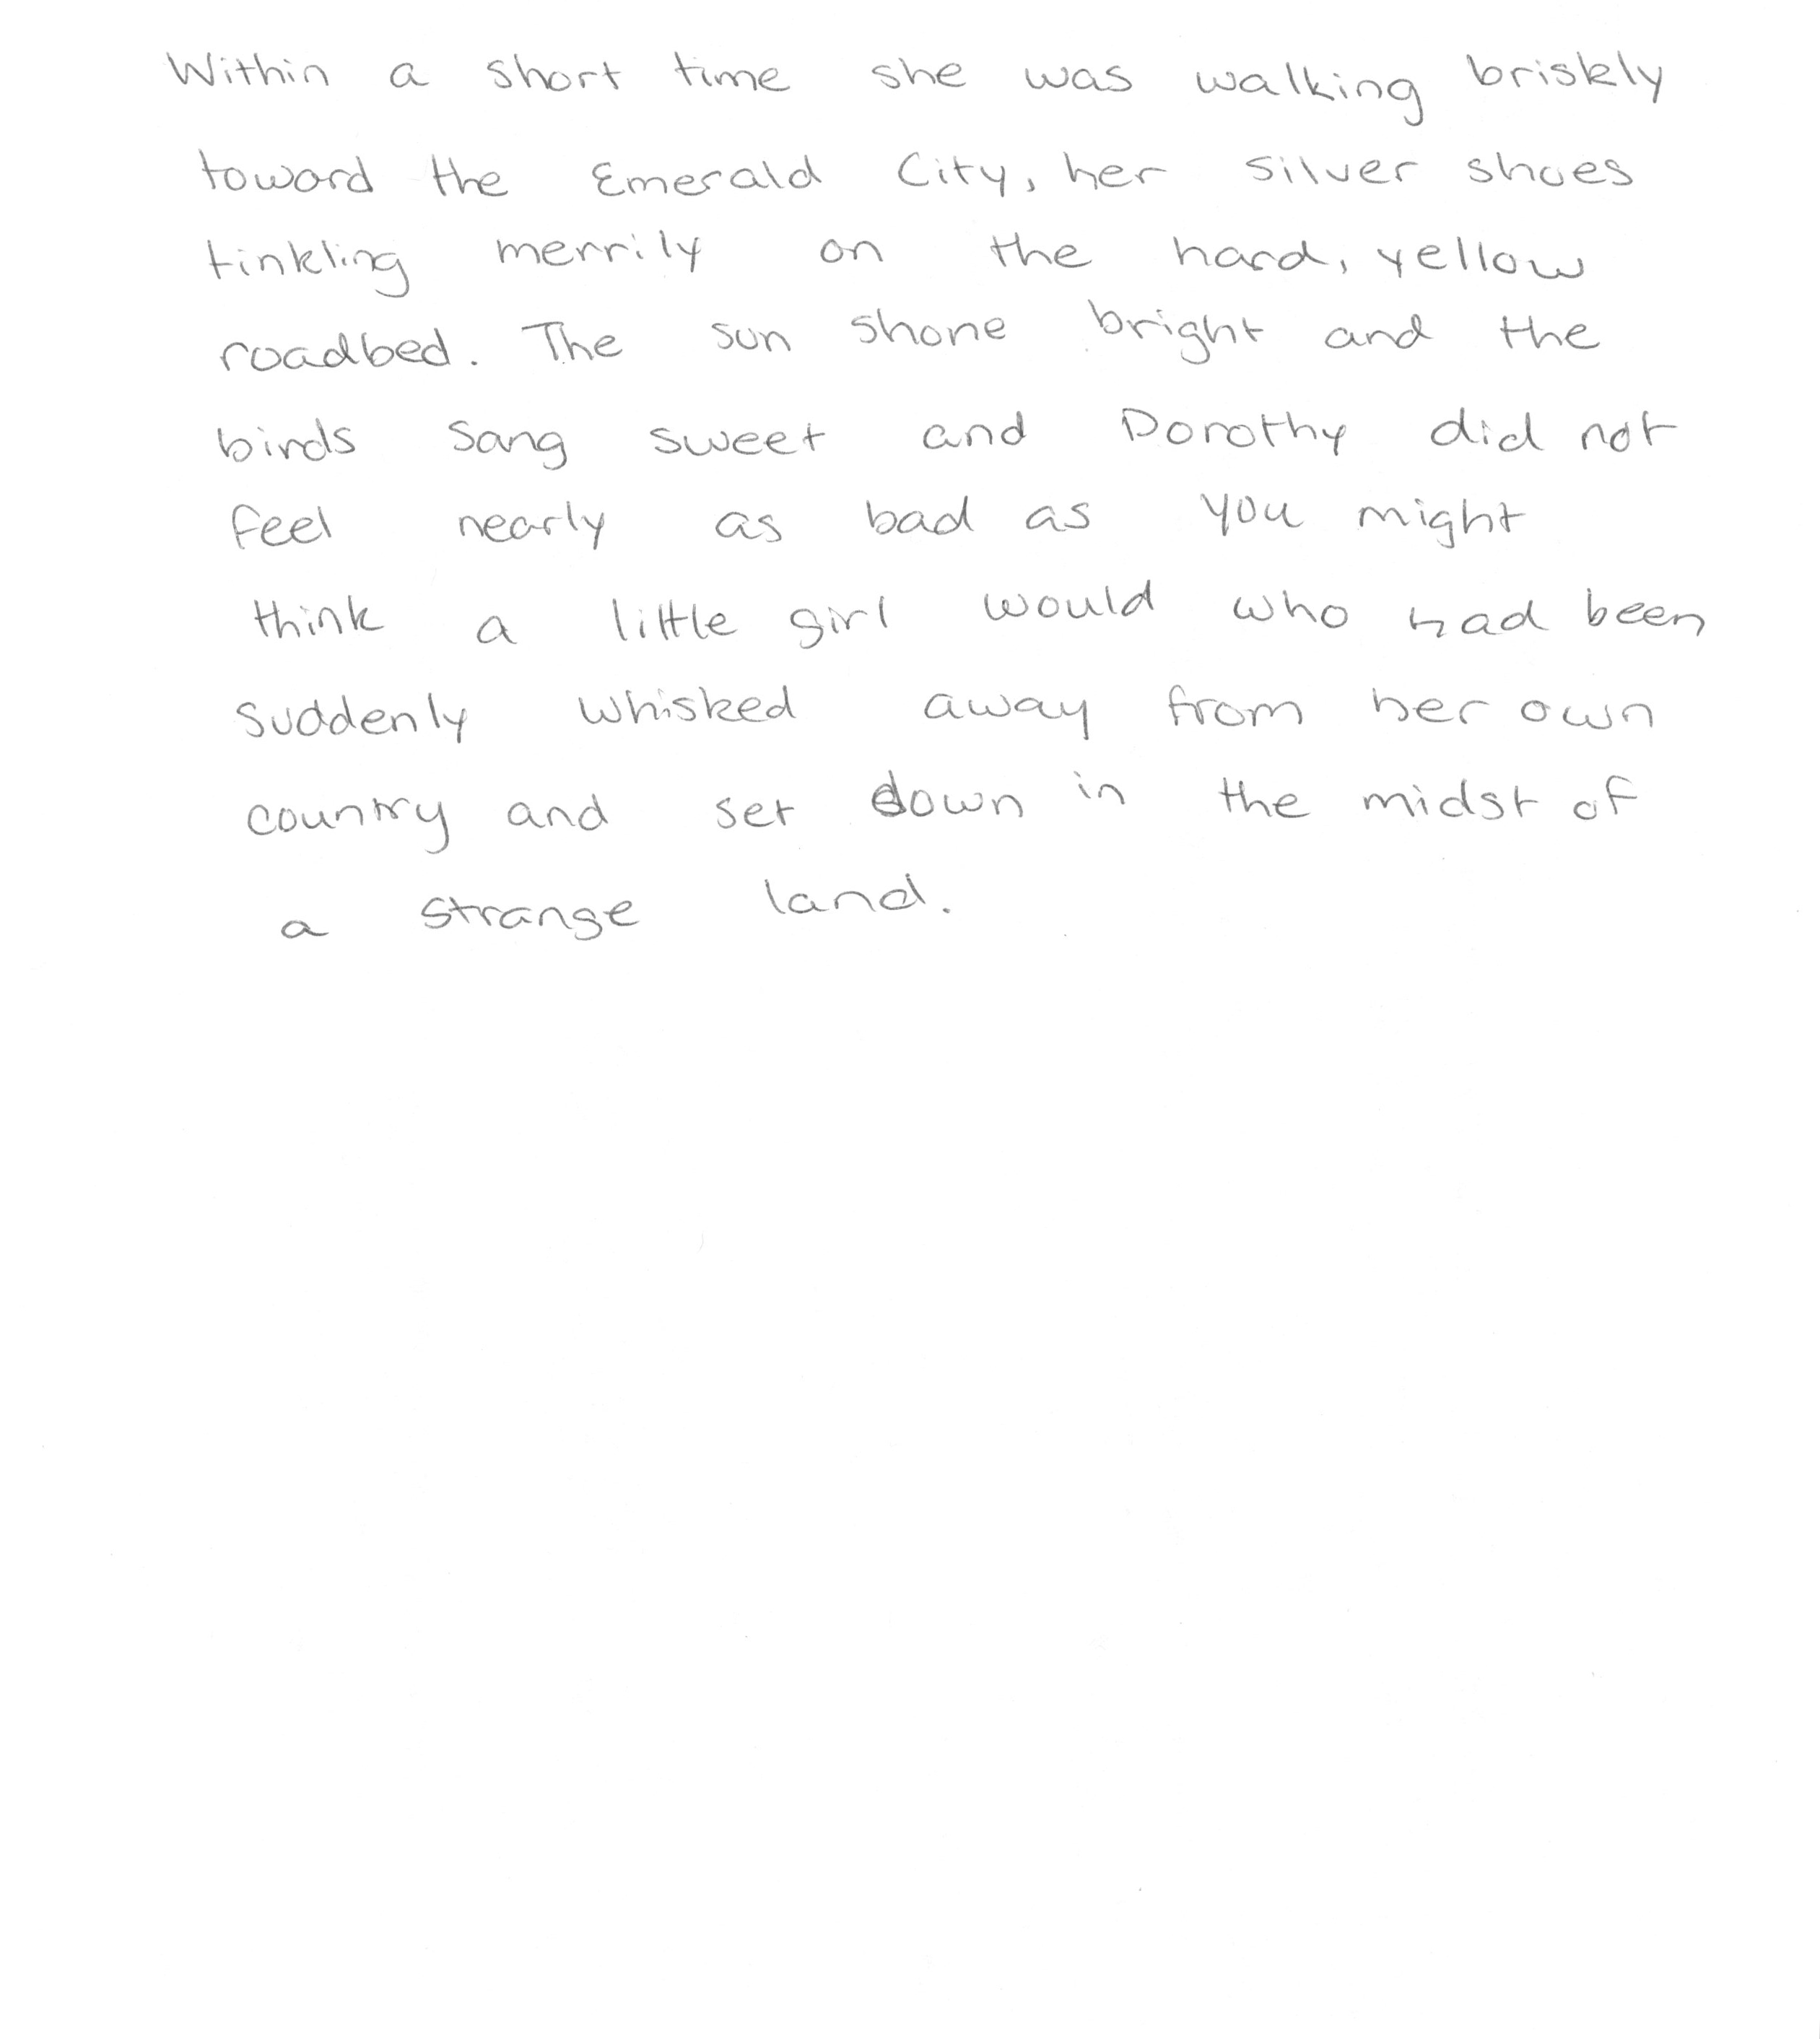 Within a short time she was walking briskly
toward the Emerald City, her silver shoes
tinkling merrily on the hard, yellow
roadbed. The sun shone bright and the
birds sang sweet and Dorothy did not
feel nearly as bad as you might
think a little girl would who had been
suddenly whisked away from her own
country and set down in the midst of
a strange land.